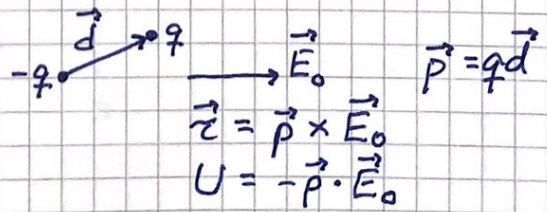 d⃗ q
-q E⃗₀ p⃗ = qd⃗
τ⃗ = p⃗ × E⃗₀
U = -p⃗ · E⃗₀